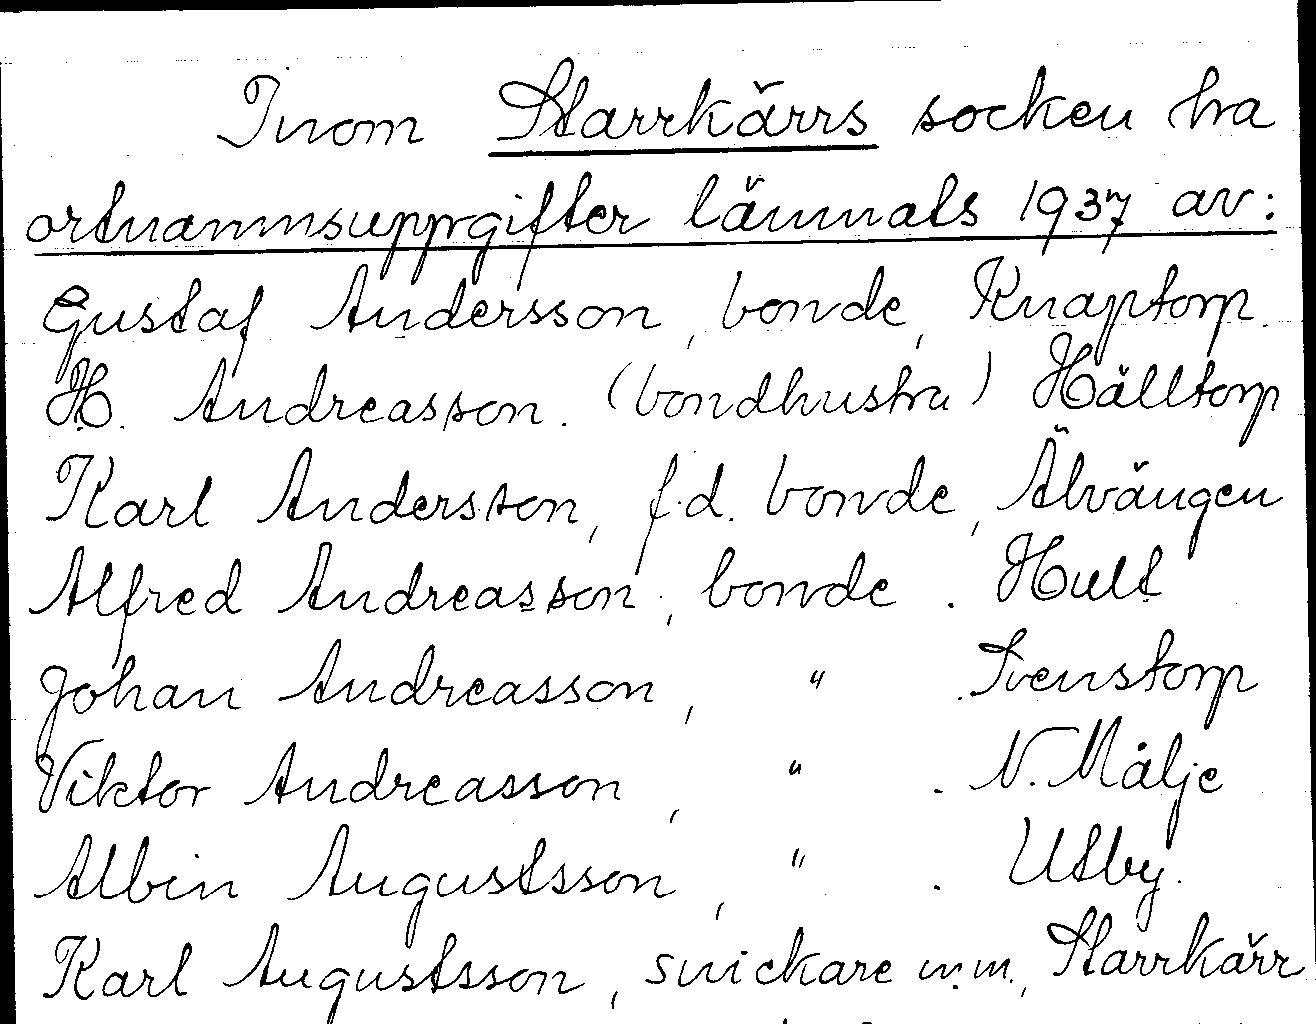 Inom Starrkärrs socken ha
ortnamnsuppgifter lämnats 1937 av:
Gustaf Andersson, bonde, Knaptorp.
H. Andreasson. (bondhustru) Hålltorp
Karl Andersson, f.d. bonde, Älvängen
Alfred Andreasson, bonde. Hult
Johan Andreasson, " . Svenstorp
Viktor Andreasson, " . N. Målje
Albin Augustsson, " . Utby.
Karl Augustsson, snickare m.m., Starrkärr